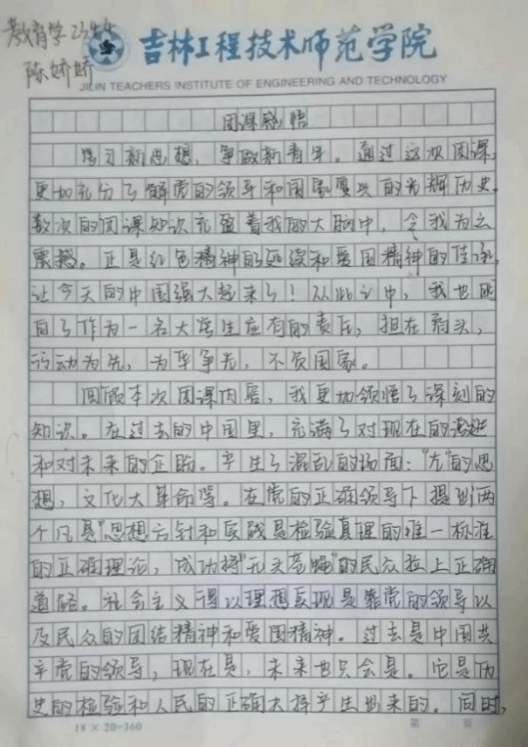 教育学2344
陈娇娇
吉林工程技术师范学院
JILIN TEACHERS INSTITUTE OF ENGINEERING AND TECHNOLOGY
团课感悟
学习新思想，争做新青年。通过这次团课，
更加充分了解党的领导和国家复兴的光辉历史，
数次的团课知识充盈着我的大脑中，令我为之
震撼。正是红色精神的延续和爱国精神的传承，
让今天的中国强大起来了！从此之中，我也明
白了作为一名大学生应有的责任，担在肩头，
行动为先，为华争光，不负国家。
回顾本次团课内容，我更加领悟了深刻的
知识。在过去的中国里，充满了对现在的
和对未来的企盼。产生了混乱的场面："左"的思
想，文化大革命等。在党的正确领导下提到两
个凡是"思想方针和实践是检验真理的唯一标准
的正确理论，成功将"的民众拉上正确
道路。社会主义得以理想实现是靠党的领导以
及民众的团结精神和爱国精神。过去是中国共
产党的领导，现在是，未来也只会是。它是历
史的检验和人民的正确大择产生出来的。同时，
18×20=360
第 页